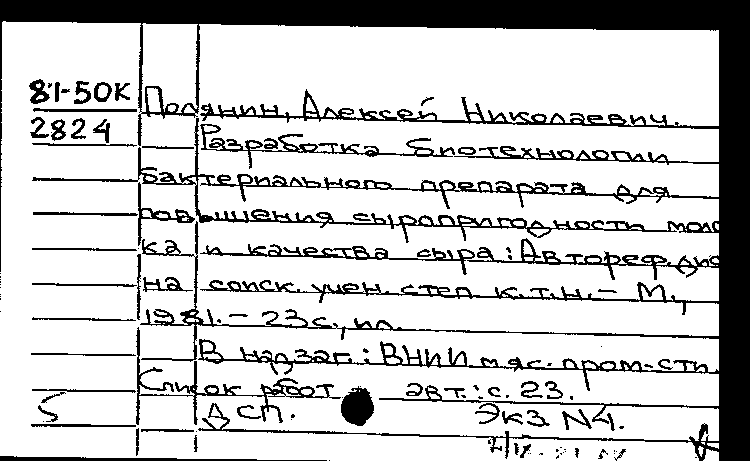 81-50К
2824
Полянин, Алексей Николаевич.
Разработка биотехнологии
бактериального препарата для
повышения сыропригодности моло
ка и качества сыра: Автореф. дис
на соиск. учен. степ к.т.н. – М.,
1981. – 23с., ил.
В надзаг.: ВНИИ мяс. пром-сти.
Список работ авт.: с. 23.
ДСП. Экз N4.